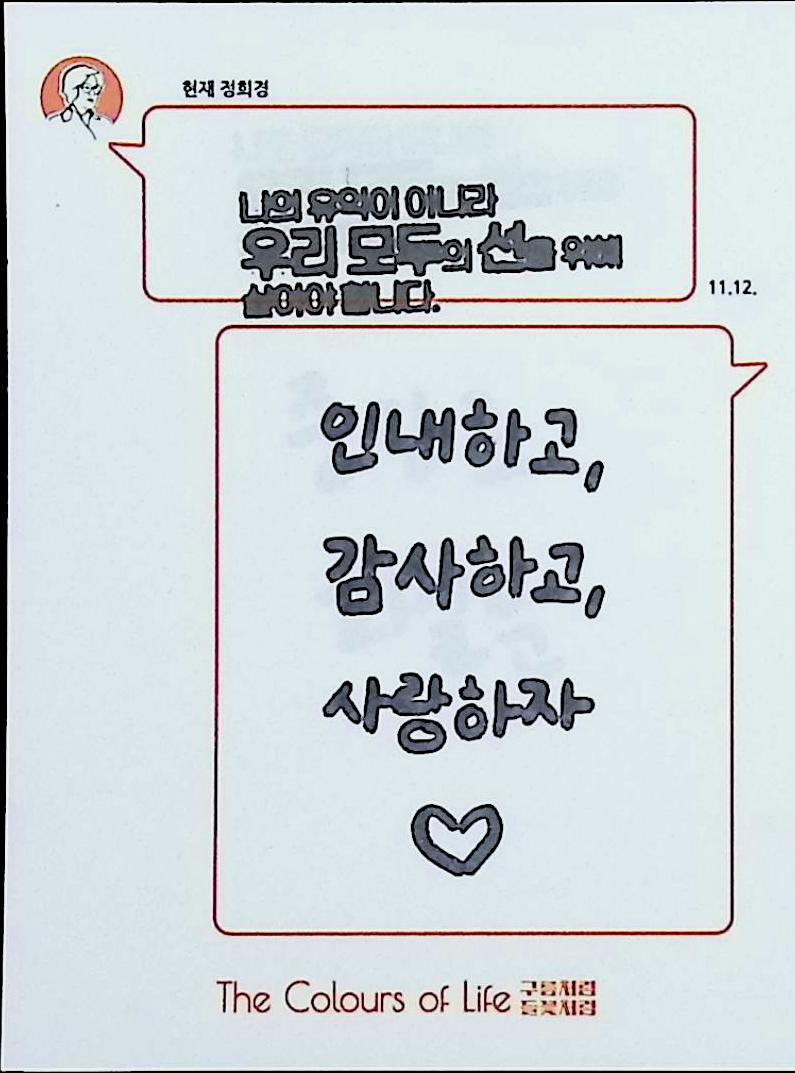 현재 정희경
나의 유익이 아니라
우리 모두의 선을 위해
살아야 합니다.
11.12.
인내하고,
감사하고,
사랑하자
The Colours of Life 구름처럼
들꽃처럼